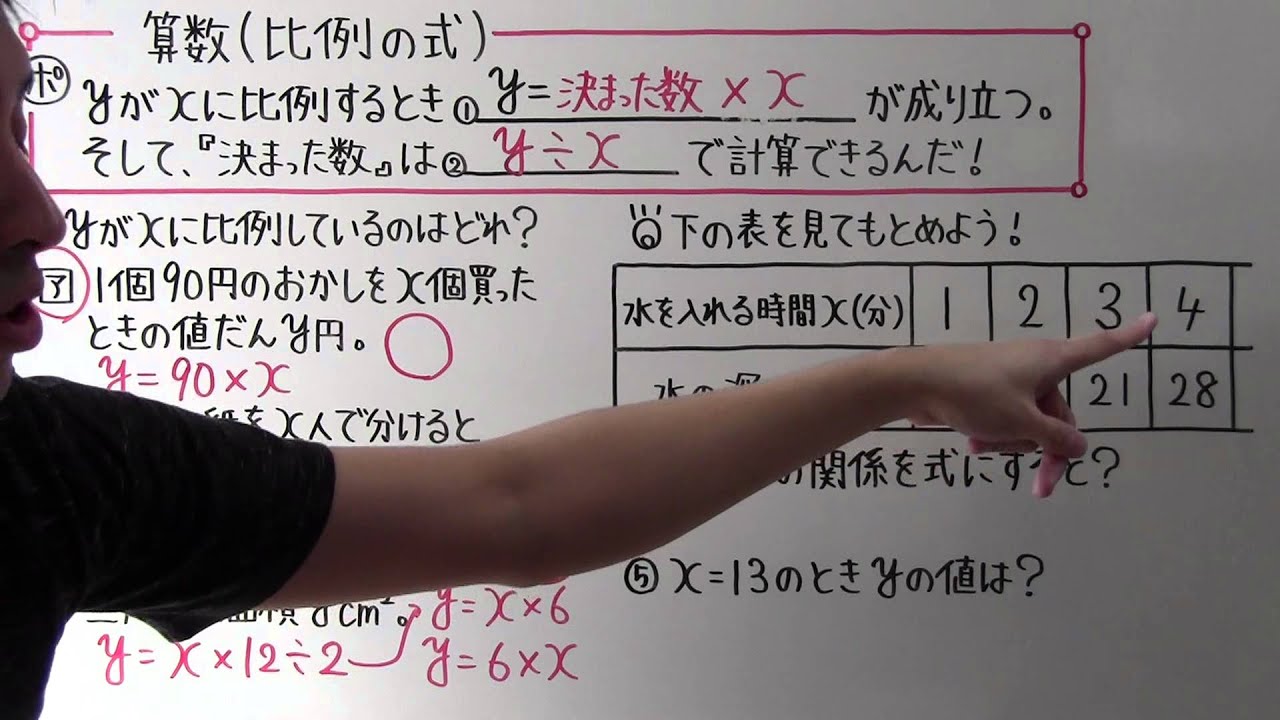 算数(比例の式)
ポ
yがxに比例するとき① y=決まった数×x が成り立つ。
そして、『決まった数』は② y÷x で計算できるんだ!
yがxに比例しているのはどれ?
ア 1個90円のおかしをx個買った
ときの値だんy円。
y=90×x
紙をx人で分けると
ycm²。 y=x×6
y=x×12÷2 y=6×x
下の表を見てもとめよう!
水を入れる時間x(分) 1 2 3 4
水の深 21 28
の関係を式にすると?
⑤x=13のときyの値は?